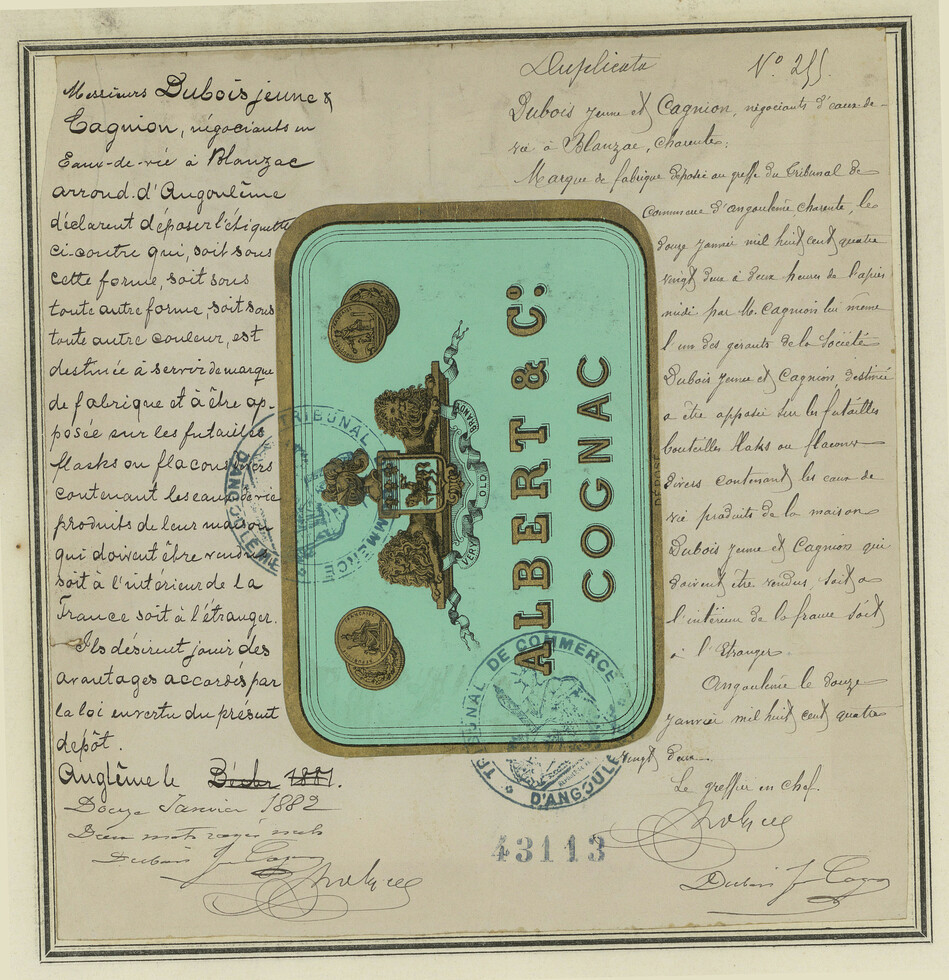 Messieurs Dubois jeune &
Cagnion, négociants en
Eaux-de-vie à Blanzac
arrond. d'Angoulême
déclarent déposer l'étiquette
ci-contre qui, soit sous
cette forme, soit sous
toute autre forme, soit sous
toute autre couleur, est
destinée à servir de marque
de fabrique et à être ap-
posée sur les futailles
flasks ou flacons divers
contenant les eaux de vie
produits de leur maison
qui doivent être vendus
soit à l'intérieur de la
France soit à l'étranger.
Ils désirent jouir des
avantages accordés par
la loi en vertu du présent
depôt.
Anglême le 1881.
Douze Janvier 1882
Deux mots rayés nuls
Dubois Jne Cagnion
ALBERT & Co:
COGNAC
VERY OLD BRANDY
DÉPOSÉ
TRIBUNAL DE COMMERCE
D'ANGOULÊME
TRIBUNAL DE COMMERCE
D'ANGOULÊME
43113
Duplicata No 255.
Dubois jeune et Cagnion, négociants d'eaux-de-
vie à Blanzac, Charente:
Marque de fabrique déposée au greffe du Tribunal de
Commerce d'angoulême, Charente, le
douze janvier mil huit cent quatre
vingt deux à deux heures de l'après
midi par M. Cagnion lui même
l'un des gérants de la Société
Dubois jeune et Cagnion, destinée
a être apposée sur les futailles
bouteilles flasks ou flacons
divers contenant les eaux de
vie produits de la maison
Dubois jeune et Cagnion qui
doivent être vendus soit a
l'intérieur de la france soit
a l'Etranger.
Angoulême le douze
janvier mil huit cent quatre
vingt deux.
Le greffier en chef.
Dubois Jne Cagnion